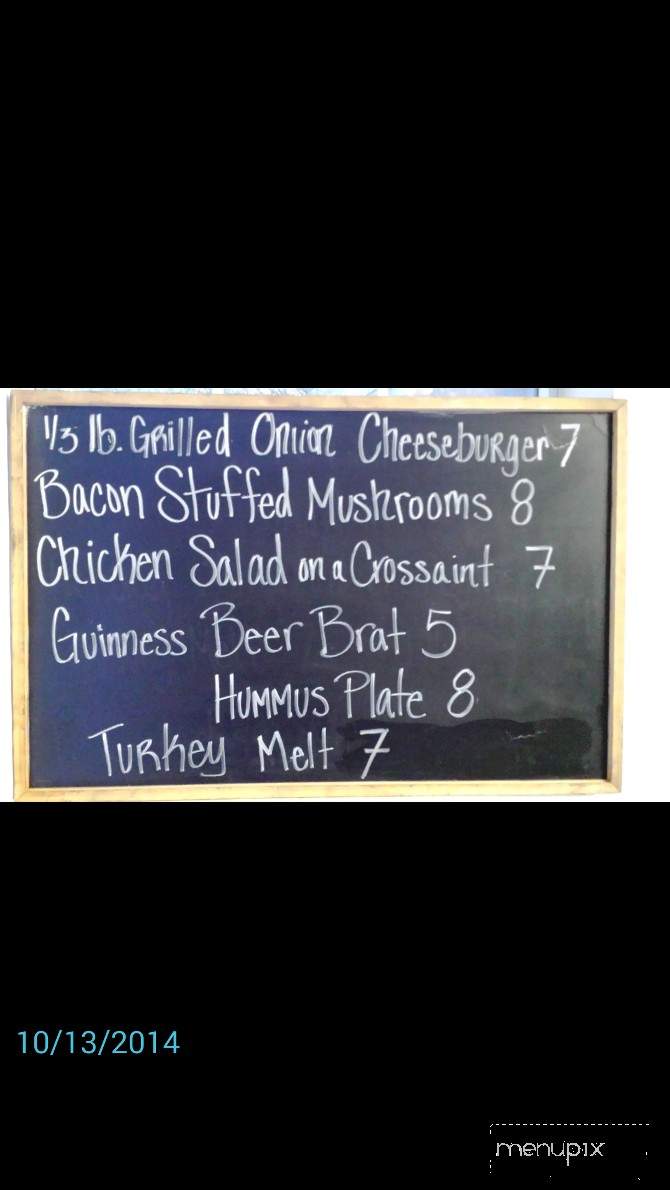 1/3 lb. Grilled Onion Cheeseburger 7
Bacon Stuffed Mushrooms 8
Chicken Salad on a Crossaint 7
Guinness Beer Brat 5
Hummus Plate 8
Turkey Melt 7
10/13/2014
menupix